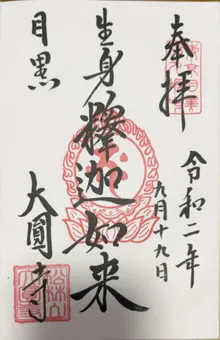 奉拝
令和二年
九月十九日
生身釋迦如来
目黒
大圓寺